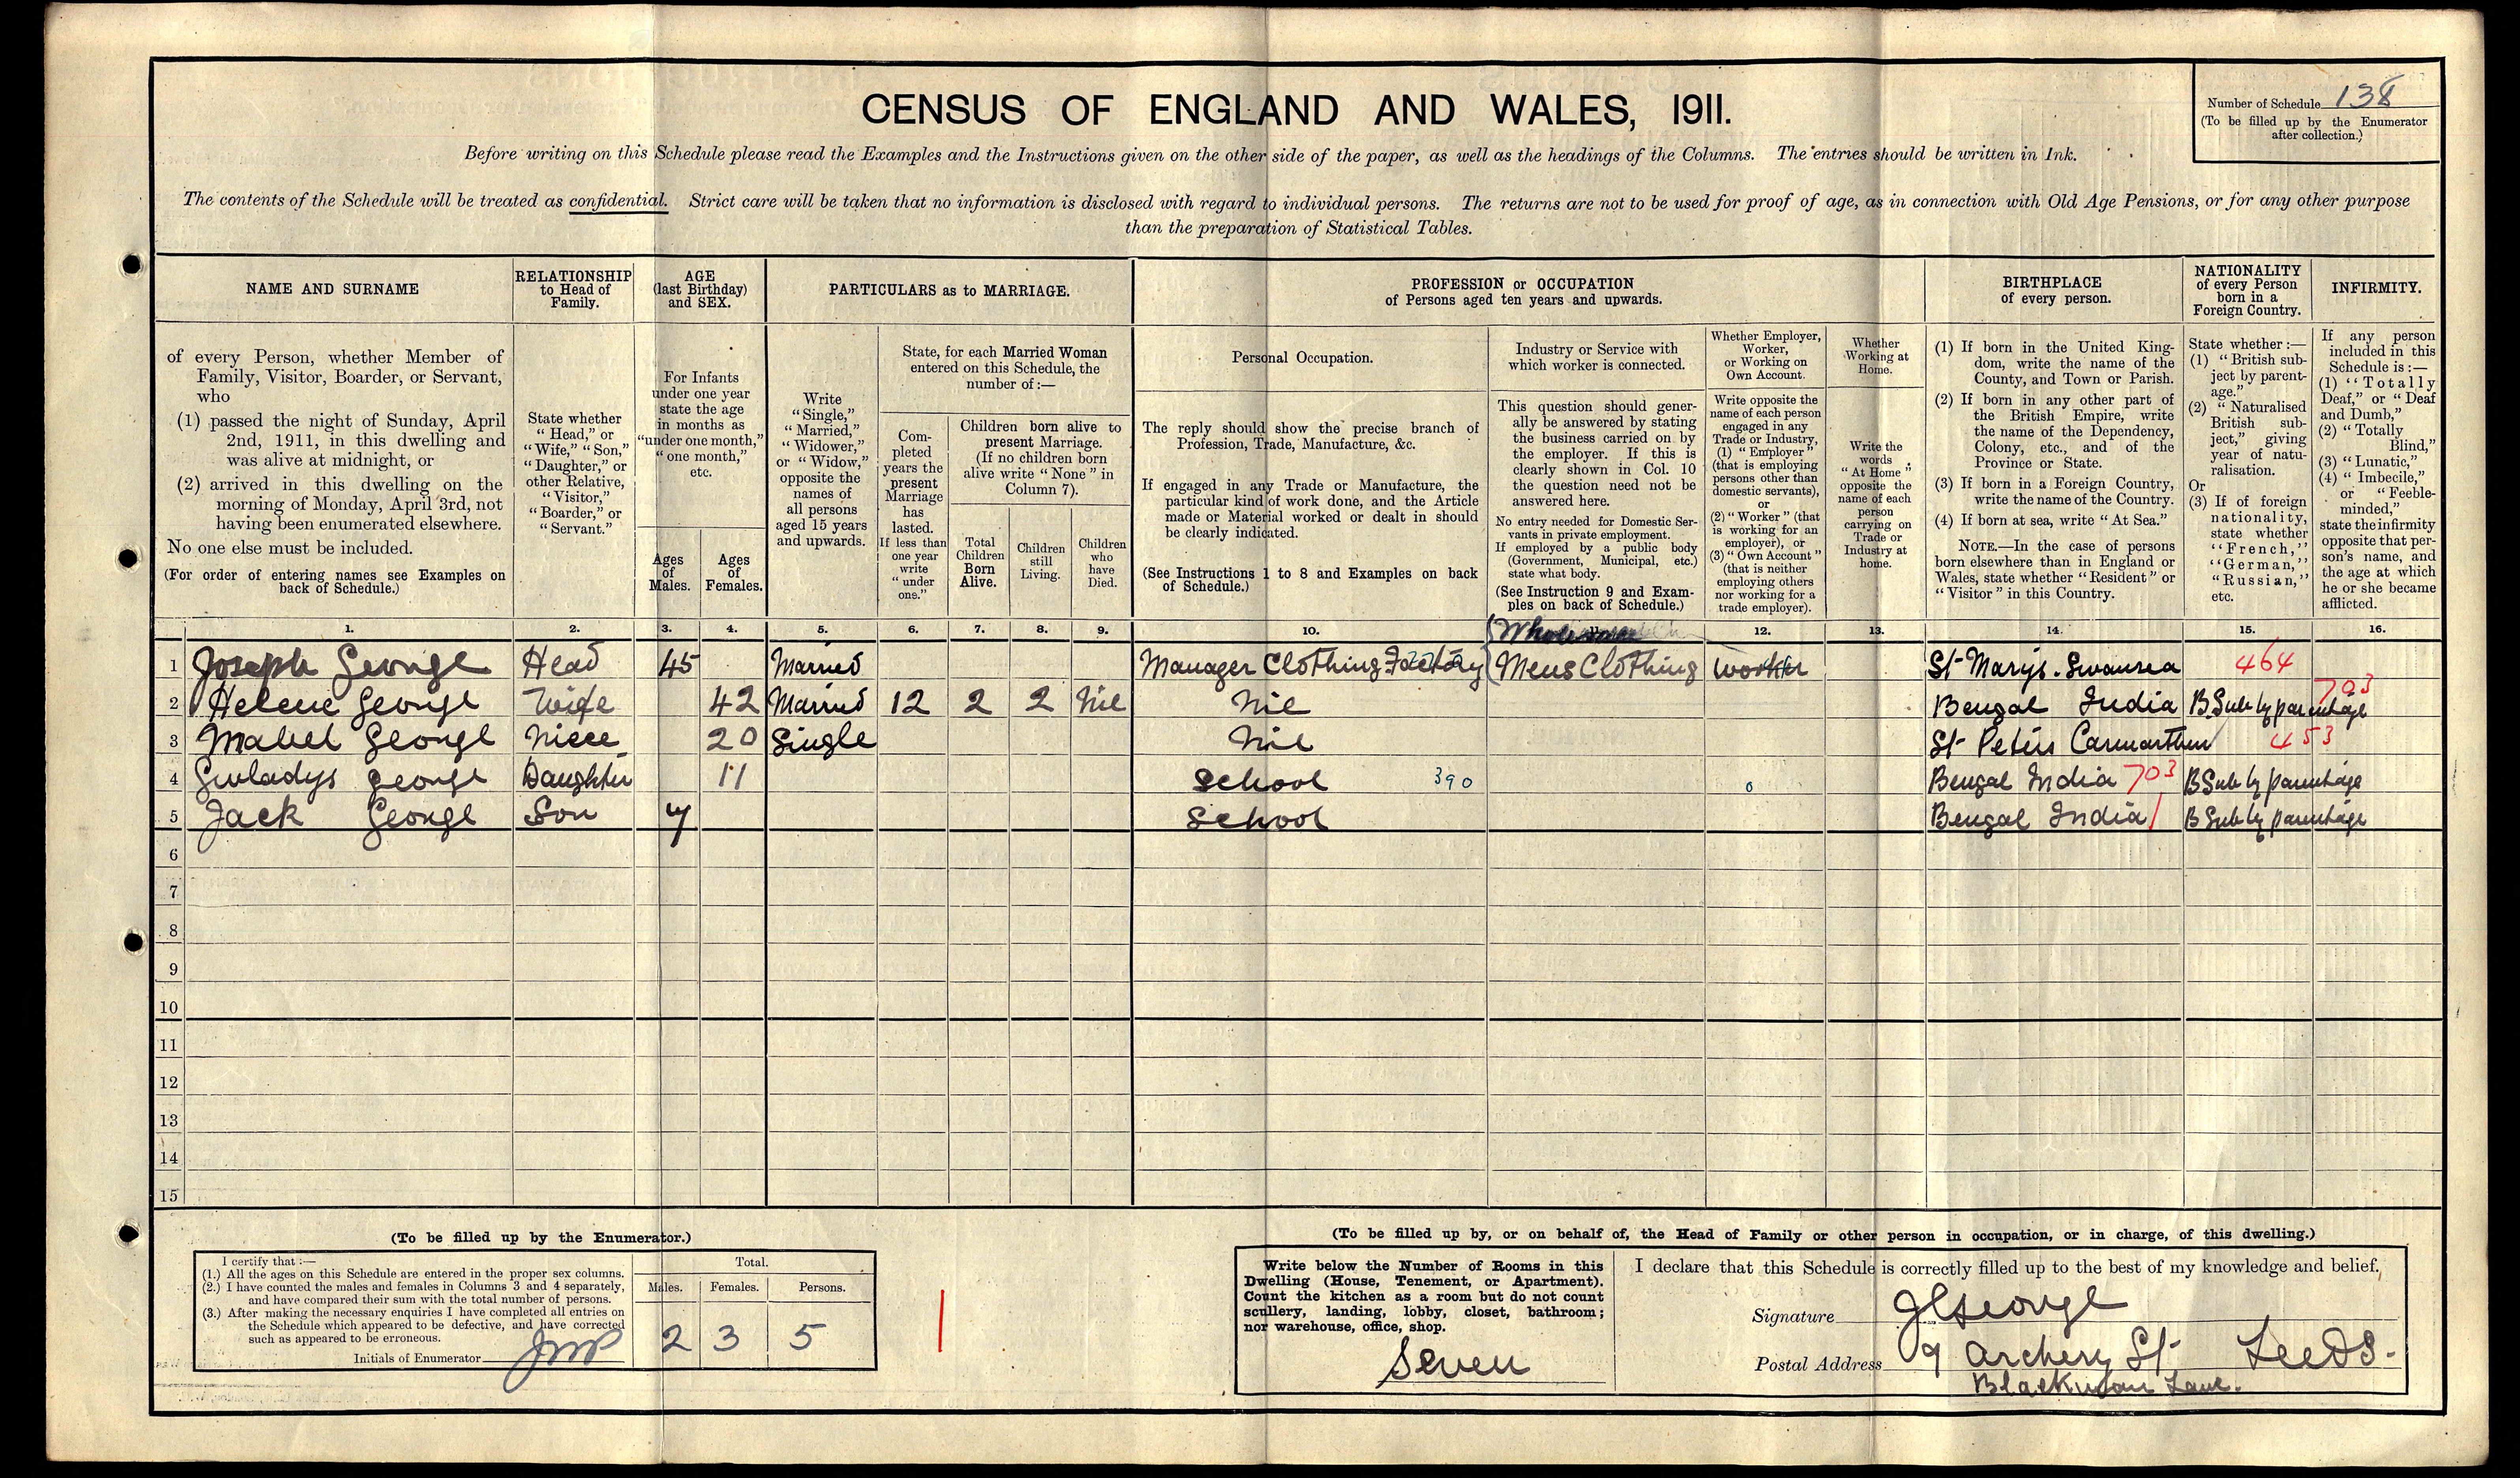 CENSUS OF ENGLAND AND WALES, 1911.
Number of Schedule 138
(To be filled up by the Enumerator
after collection.)
Before writing on this Schedule please read the Examples and the Instructions given on the other side of the paper, as well as the headings of the Columns. The entries should be written in Ink.
The contents of the Schedule will be treated as confidential. Strict care will be taken that no information is disclosed with regard to individual persons. The returns are not to be used for proof of age, as in connection with Old Age Pensions, or for any other purpose
than the preparation of Statistical Tables.
NAME AND SURNAME
RELATIONSHIP
to Head of
Family.
AGE
(last Birthday)
and SEX.
PARTICULARS as to MARRIAGE.
PROFESSION or OCCUPATION
of Persons aged ten years and upwards.
BIRTHPLACE
of every person.
NATIONALITY
of every Person
born in a
Foreign Country.
INFIRMITY.
of every Person, whether Member of
Family, Visitor, Boarder, or Servant,
who
(1) passed the night of Sunday, April
2nd, 1911, in this dwelling and
was alive at midnight, or
(2) arrived in this dwelling on the
morning of Monday, April 3rd, not
having been enumerated elsewhere.
No one else must be included.
(For order of entering names see Examples on
back of Schedule.)
State whether
"Head," or
"Wife," "Son,"
"Daughter," or
other Relative,
"Visitor,"
"Boarder," or
"Servant."
For Infants
under one year
state the age
in months as
"under one month,"
"one month,"
etc.
Ages
of
Males.
Ages
of
Females.
Write
"Single,"
"Married,"
"Widower,"
or "Widow,"
opposite the
names of
all persons
aged 15 years
and upwards.
State, for each Married Woman
entered on this Schedule, the
number of:—
Com-
pleted
years the
present
Marriage
has
lasted.
If less than
one year
write
"under
one."
Children born alive to
present Marriage.
(If no children born
alive write "None" in
Column 7).
Total
Children
Born
Alive.
Children
still
Living.
Children
who
have
Died.
Personal Occupation.
The reply should show the precise branch of
Profession, Trade, Manufacture, &c.
If engaged in any Trade or Manufacture, the
particular kind of work done, and the Article
made or Material worked or dealt in should
be clearly indicated.
(See Instructions 1 to 8 and Examples on back
of Schedule.)
Industry or Service with
which worker is connected.
This question should gener-
ally be answered by stating
the business carried on by
the employer. If this is
clearly shown in Col. 10
the question need not be
answered here.
No entry needed for Domestic Ser-
vants in private employment.
If employed by a public body
(Government, Municipal, etc.)
state what body.
(See Instruction 9 and Exam-
ples on back of Schedule.)
Whether Employer,
Worker,
or Working on
Own Account.
Write opposite the
name of each person
engaged in any
Trade or Industry,
(1) "Employer"
(that is employing
persons other than
domestic servants),
or
(2) "Worker" (that
is working for an
employer), or
(3) "Own Account"
(that is neither
employing others
nor working for a
trade employer).
Whether
Working at
Home.
Write the
words
"At Home"
opposite the
name of each
person
carrying on
Trade or
Industry at
home.
(1) If born in the United King-
dom, write the name of the
County, and Town or Parish.
(2) If born in any other part of
the British Empire, write
the name of the Dependency,
Colony, etc., and of the
Province or State.
(3) If born in a Foreign Country,
write the name of the Country.
(4) If born at sea, write "At Sea."
NOTE.—In the case of persons
born elsewhere than in England or
Wales, state whether "Resident" or
"Visitor" in this Country.
State whether:—
(1) "British sub-
ject by parent-
age."
(2) "Naturalised
British sub-
ject," giving
year of natu-
ralisation.
Or
(3) If of foreign
nationality,
state whether
"French,"
"German,"
"Russian,"
etc.
If any person
included in this
Schedule is:—
(1) "Totally
Deaf," or "Deaf
and Dumb,"
(2) "Totally
Blind,"
(3) "Lunatic,"
(4) "Imbecile,"
or "Feeble-
minded,"
state the infirmity
opposite that per-
son's name, and
the age at which
he or she became
afflicted.
1. 2. 3. 4. 5. 6. 7. 8. 9. 10. 12. 13. 14. 15. 16.
Wholesale
1 Joseph George Head 45 Married Manager Clothing Factory Mens Clothing worker St Marys. Swansea 464
2 Helene George Wife 42 Married 12 2 2 Nil Nil Bengal India B. Sub by parentage 703
3 Mabel George Niece 20 Single Nil St Peters Carmarthen 453
4 Gwladys George Daughter 11 School 390 0 Bengal India 703 B Sub by parentage
5 Jack George Son 7 School Bengal India B Sub by parentage
6
7
8
9
10
11
12
13
14
15
(To be filled up by the Enumerator.)
I certify that:—
(1.) All the ages on this Schedule are entered in the proper sex columns.
(2.) I have counted the males and females in Columns 3 and 4 separately,
and have compared their sum with the total number of persons.
(3.) After making the necessary enquiries I have completed all entries on
the Schedule which appeared to be defective, and have corrected
such as appeared to be erroneous.
Initials of Enumerator JMP
Total.
Males. Females. Persons.
2 3 5
(To be filled up by, or on behalf of, the Head of Family or other person in occupation, or in charge, of this dwelling.)
Write below the Number of Rooms in this
Dwelling (House, Tenement, or Apartment).
Count the kitchen as a room but do not count
scullery, landing, lobby, closet, bathroom;
nor warehouse, office, shop.
Seven
I declare that this Schedule is correctly filled up to the best of my knowledge and belief.
Signature J George
Postal Address 9 Archery St. Leeds.
Blackman Lane.